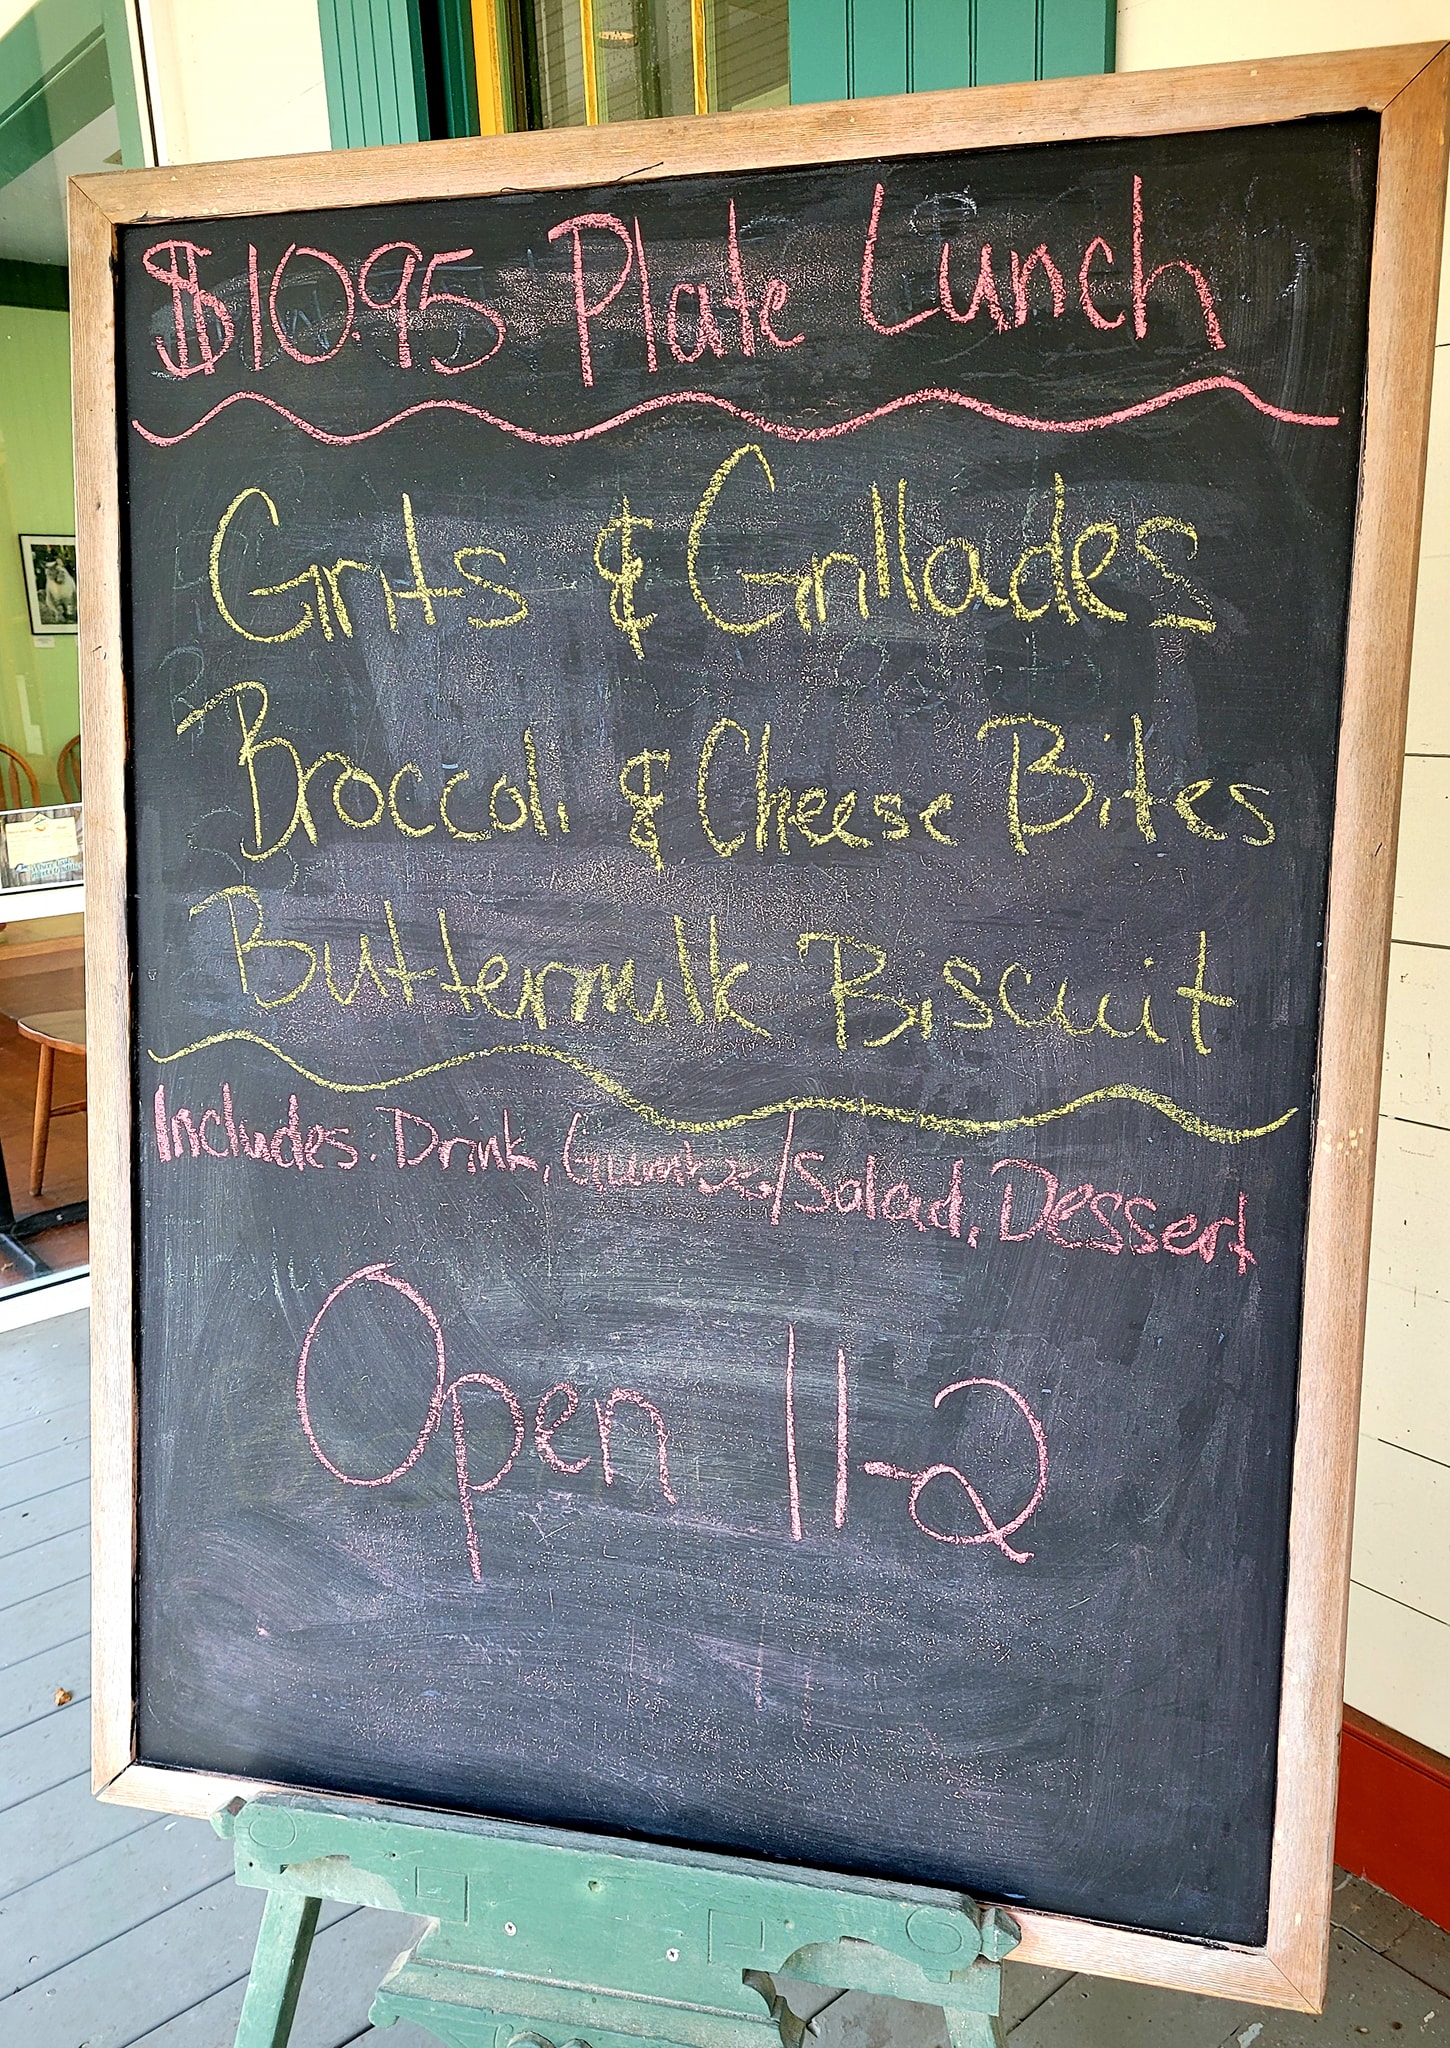 $10.95 Plate Lunch
Grits & Grillades
Broccoli & Cheese Bites
Buttermilk Biscuit
Includes: Drink, Gumbo/Salad, Dessert
Open 11-2